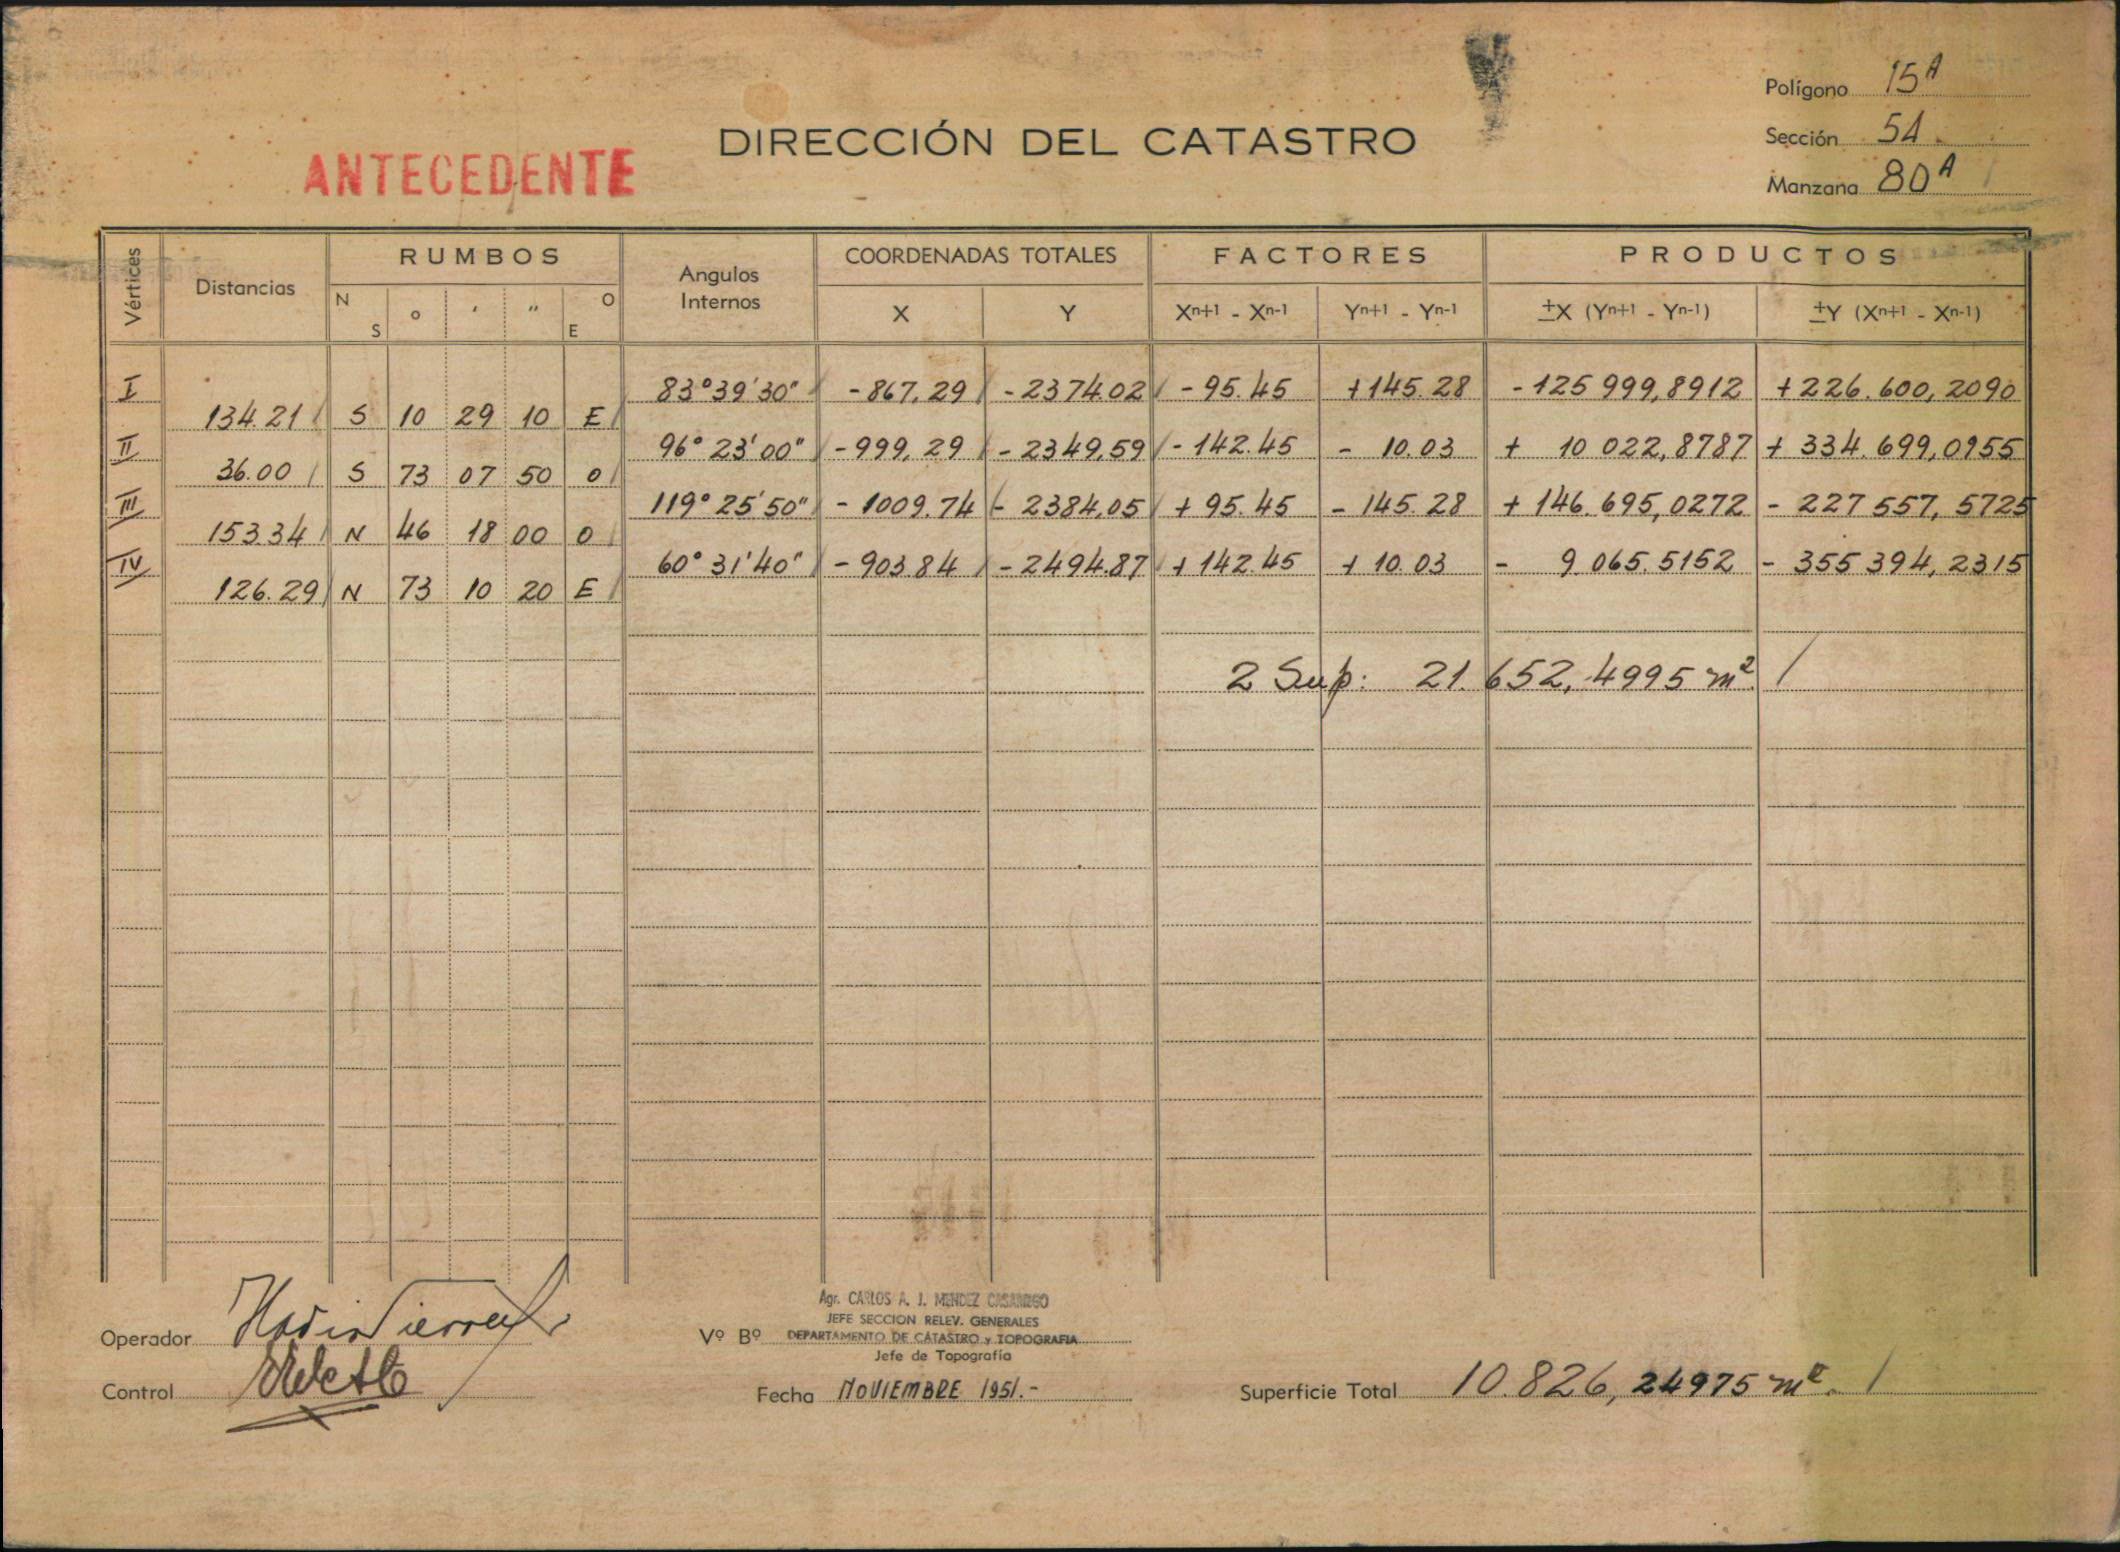 Polígono 15A
DIRECCIÓN DEL CATASTRO
Sección 5A.
ANTECEDENTE
Manzana 80A
Vértices Distancias RUMBOS Angulos Internos COORDENADAS TOTALES FACTORES PRODUCTOS
N S o ' " O E X Y Xn+1 - Xn-1 Yn+1 - Yn-1 ±X (Yn+1 - Yn-1) ±Y (Xn+1 - Xn-1)
I 83°39'30" -867,29 -2374.02 -95.45 +145.28 -125 999,8912 +226.600,2090
134.21 S 10 29 10 E
II 96°23'00" -999,29 -2349,59 -142.45 - 10.03 + 10 022,8787 + 334.699,0955
36.00 S 73 07 50 O
III 119°25'50" - 1009.74 - 2384,05 + 95.45 - 145.28 + 146.695,0272 - 227 557,5725
153.34 N 46 18 00 O
IV 60°31'40" -903.84 -2494.87 + 142.45 + 10.03 - 9.065.5152 - 355 394,2315
126.29 N 73 10 20 E
2 Sup: 21.652,4995 m²
Agr. CARLOS A. J. MENDEZ CASARIEGO
JEFE SECCION RELEV. GENERALES
Operador Vº Bº DEPARTAMENTO DE CATASTRO y TOPOGRAFIA
Jefe de Topografía
Control Fecha NOVIEMBRE 1951.- Superficie Total 10.826,24975 m².